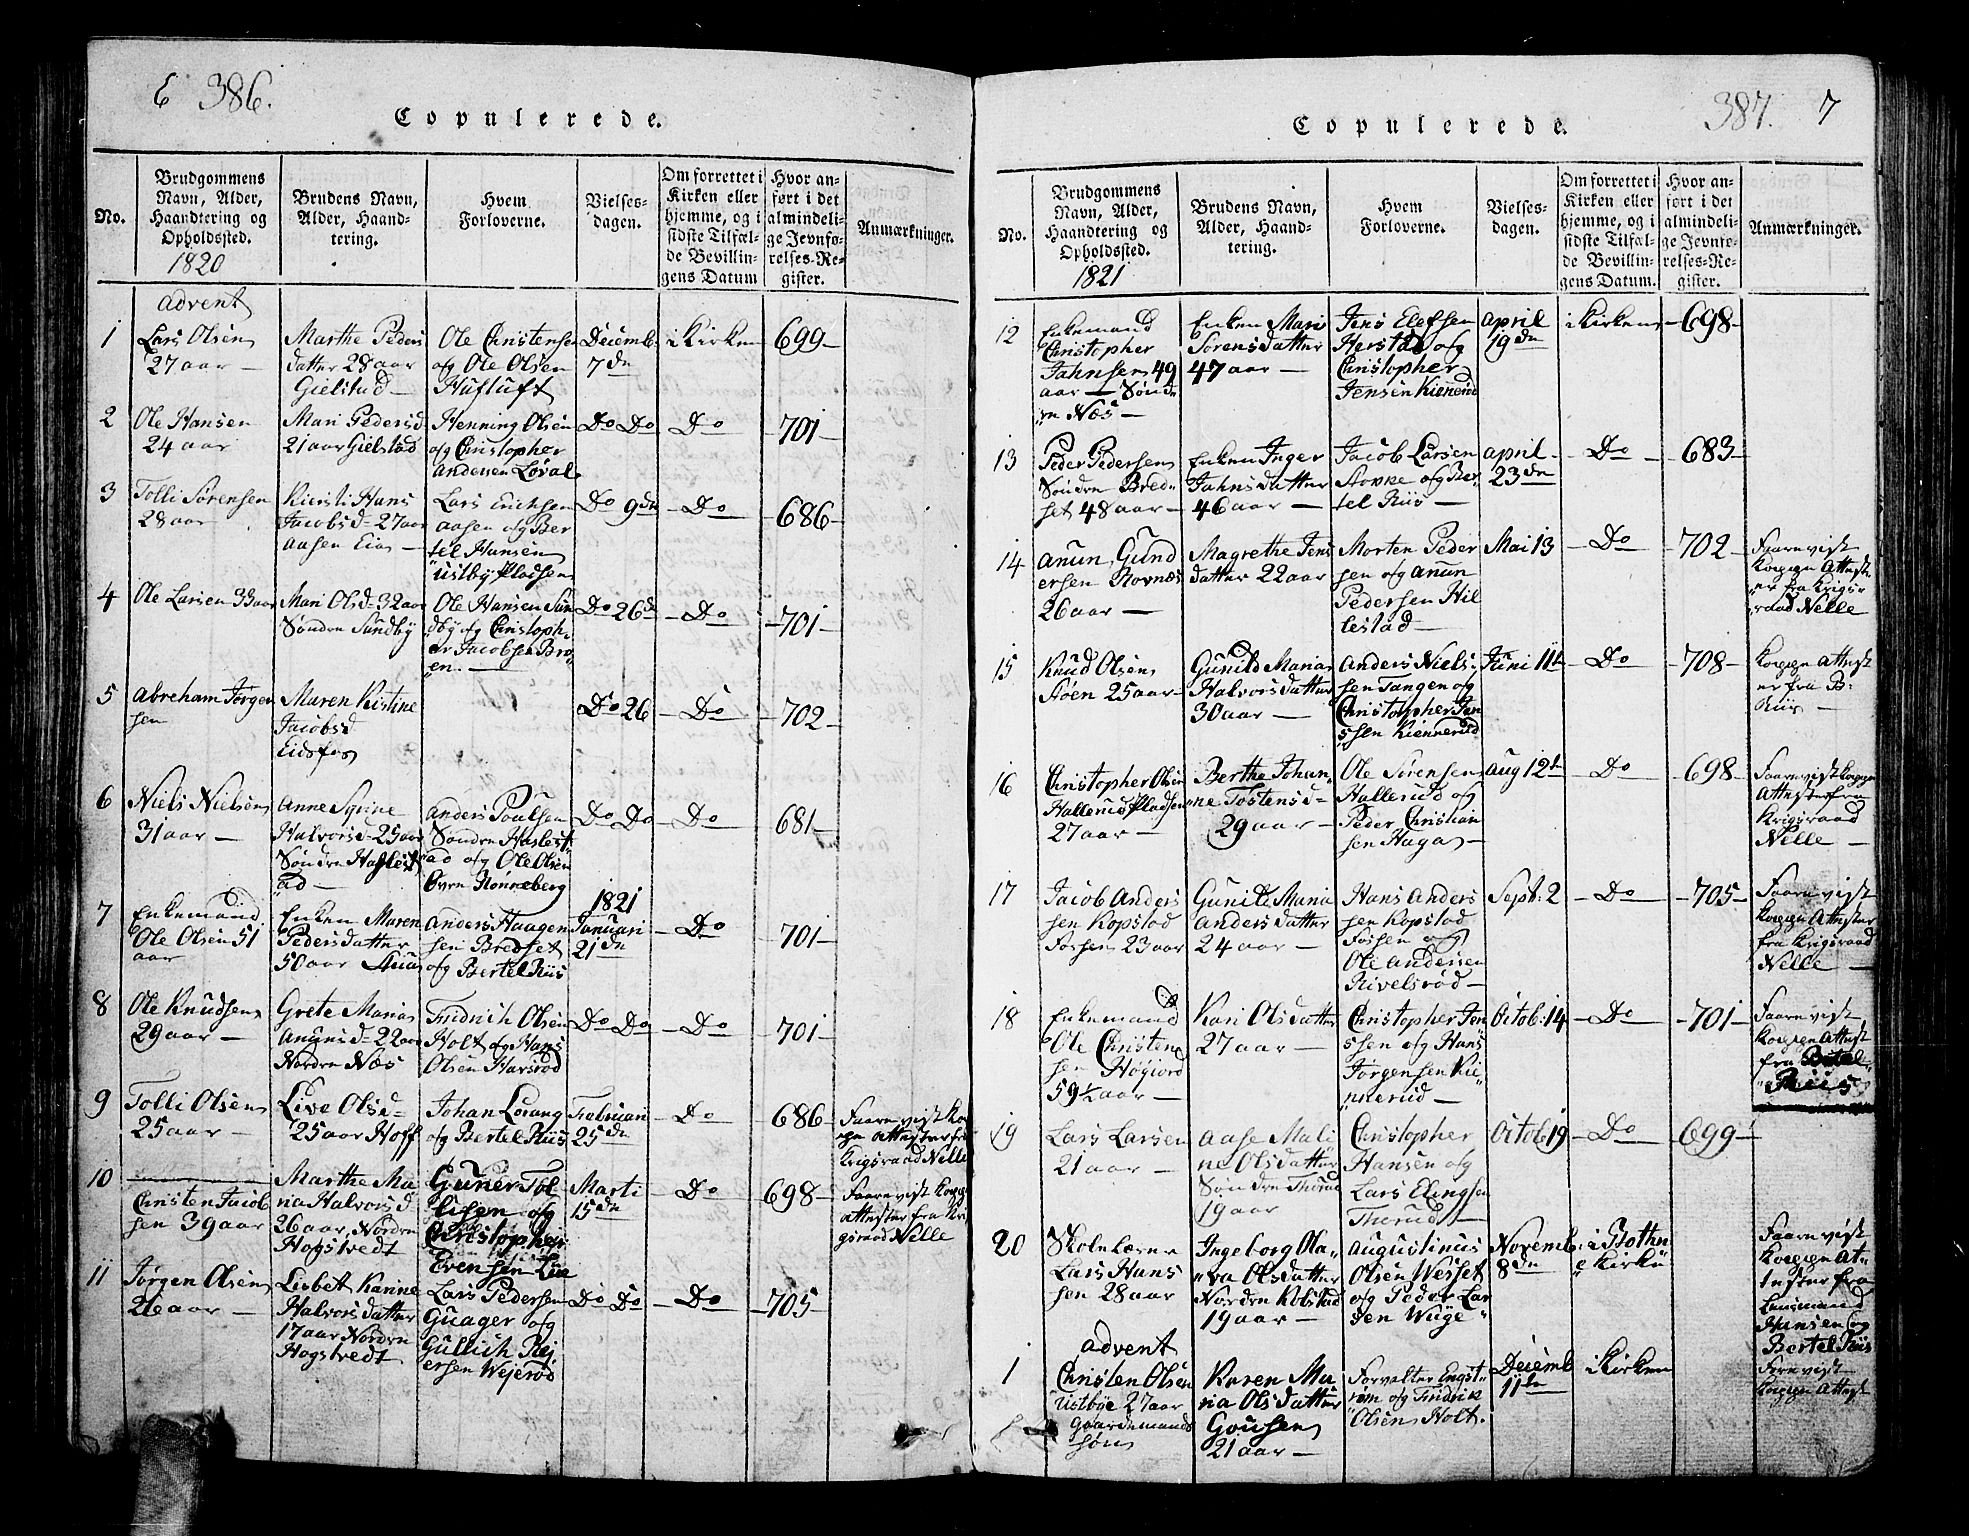 E 386.
Copulerede.
No.
Brudgommens
Navn, Alder,
Haandtering og
Opholdssted.
1820
Brudens Navn,
Alder, Haand-
tering.
Hvem
Forloverne.
Vielses-
dagen.
Om forrettet i
Kirken eller
hjemme, og i
sidste Tilfæl-
de Bevillin-
gens Datum
Hvor an-
ført i det
almindeli-
ge Jevnfø-
relses-Re-
gister.
Anmærkninger.
advent
1
Lars Olsen
27 aar —
Marthe Peders
datter 28 aar
Gielstad —
Ole Christensen
og Ole Olsen
Huftuft
Decemb.
7de
i Kirken
699
2
Ole Hansen
24 aar
Mari Pedersd
21 aar Gielstad
Henning Olsen
og Christopher
Andersen Løval
Do Do
Do
701
3
Tolli Sørensen
28 aar
Kiersti Hans
Jacobsd= 27 aar
aasen Eie —
Lars Erichsen
aasen og Ber
tel Hansen
ustby Pladsen
Do 9de
Do
686
4
Ole Larsen 33 aar
Mari Olsd= 32 aar
Søndre Sundby
Ole Hansen Sun
dby og Christoph
er Jacobsen Bro
en. —
Do 26de
Do
701
5
Abreham Jørgen
sen
Maren Kistine
Jacobsd
Eidsfos
Do 26
Do
702
6
Niels Nielsen
31 aar —
Anne Syrine
Halvorsd= 25 aar
Søndre Haslest
ad —
Anders Poulsen
Søndre Haslest
ad og Ole Olsen
Øvre Rønneberg
Do Do
Do
681
7
Enkemand
Ole Olsen 51
aar
Enken Maren
Pedersdatter
50 aar
Anders Haagen
sen Bredset
og Bertel Riis
1821
Januari
21de
Do
701
8
Ole Knudsen
29 aar —
Grete Maria
Anunsd= 22 aar
Nordre Næs
Fridrich Olsen
Holt og Hans
Olsen Harsrod
Do Do
Do
701
9
Tolli Olsen
25 aar —
Live Olsd=
25 aar Hoff
Johan Lorang
og Bertel Riis
Februari
25de
Do
686
Faarevist Ko
ppe Attester fra
Krigsraad Nelle
10
Christen Jacob
sen 39 aar
Marthe Ma
ria Halvorsd
26 aar, Nordre
Hogstvedt
Guner Tol
lisen og
Christopher
Evensen Lie
Marti
15de
Do
698
Faarevist Koppe
Attester fra Kri
gsraad Nelle
11
Jørgen Olsen
26 aar —
Lisbet Karine
Halvorsdatter
17 aar Nordre
Hogstvedt
Lars Pedersen
Guager og
Gullich Rej
ersen Wejerød
Do Do
Do
705
387. 7
Copulerede.
No.
Brudgommens
Navn, Alder,
Haandtering og
Opholdssted.
1821
Brudens Navn,
Alder, Haand-
tering.
Hvem
Forloverne.
Vielses-
dagen.
Om forrettet i
Kirken eller
hjemme, og i
sidste Tilfæl-
de Bevillin-
gens Datum.
Hvor an-
ført i det
almindeli-
ge Jevnfø-
relses-Re-
gister.
Anmærkninger.
12
Enkemand
Christopher
Jahnsen 49
aar — Sønd
re Næs —
Enken Mari
Sørensdatter
47 aar —
Jens Elefsen
Herstad og
Christopher
Jensen Kienerud
April
19de
i Kirken
698
13
Peder Pedersen
Søndre Bred=
set 48 aar —
Enken Inger
Jahnsdatter
46 aar —
Jacob Larsen
Hovke og Ber
tel Riis —
April
23de
Do
683
14
Anun Gund
ersen Rovnæs
26 aar —
Magrethe Jens
datter 22 aar
Morten Peder
sen og Anun
Pedersen Hil
lestad —
Mai 13
Do
702
Faarevist
Koppe Attest
er fra Krigs=
raad Nelle
15
Knud Olsen
Støen 25 aar
Gunild Maria
Halvorsdatter
30 aar —
Anders Niels=
sen Tangen og
Christopher Jan
sen Kiennerud
Juni 11te
Do
708
Koppe Attest
er fra B:
Riis —
16
Christopher Olsen
Hallerud Pladsen
27 aar —
Berthe Johan
ne Tostensd=
29 aar —
Ole Sørensen
Hallerud og
Peder Christian
sen Haga —
Aug 12te
Do
698
Faarevist Koppe
Attester fra
Krigsraad
Nelle —
17
Jacob Anders
sen Kopstad
Fossen 23 aar
Gunild Maria
Andersdatter
24 aar —
Hans Anders
sen Kopstad
Fossen og
Ole Andersen
Rivelsrød —
Sept: 2
Do
705
Faarevist
Koppe Attester
fra Krigsraad
Nelle —
18
Enkemand
Ole Christen
sen Høgiord
59½ aar —
Kari Olsdatter
27 aar —
Christopher Jen
ssen og Hans
Jørgensen Kie=
nnerud —
Octob: 14
Do
701
Faarevist
Koppe Attest
fra Bertel
Riis
19
Lars Larsen
21 aar —
Aase Mali
ne Olsdatter
Søndre Thorud
19 aar
Christopher
Hansen og
Lars Elingsen
Thorud —
Octob 19
Do
699
20
Skole Lærer
Lars Hans
sen 28 aar
Ingeborg Ola=
va Olsdatter
Nordre Kobstad
19 aar —
Augustinus
Olsen Wesset
og Peder Lar
sen Wiige
Novemb:
8de
i Bothn
e Kirke
Faarevist
Koppe At=
tester fra
Lensmand
Hansen og
Bertel Riis
advent
1
Christen Olsen
Ustbye 27 aar
Gaardemands
søn
Karen Ma
ria Olsdatter
Gousen
21 aar —
Forvalter Engst=
røm og Fridrik
Olsen Holt.
Decemb
11te
i Kirken
Forevist
Koppe Attest